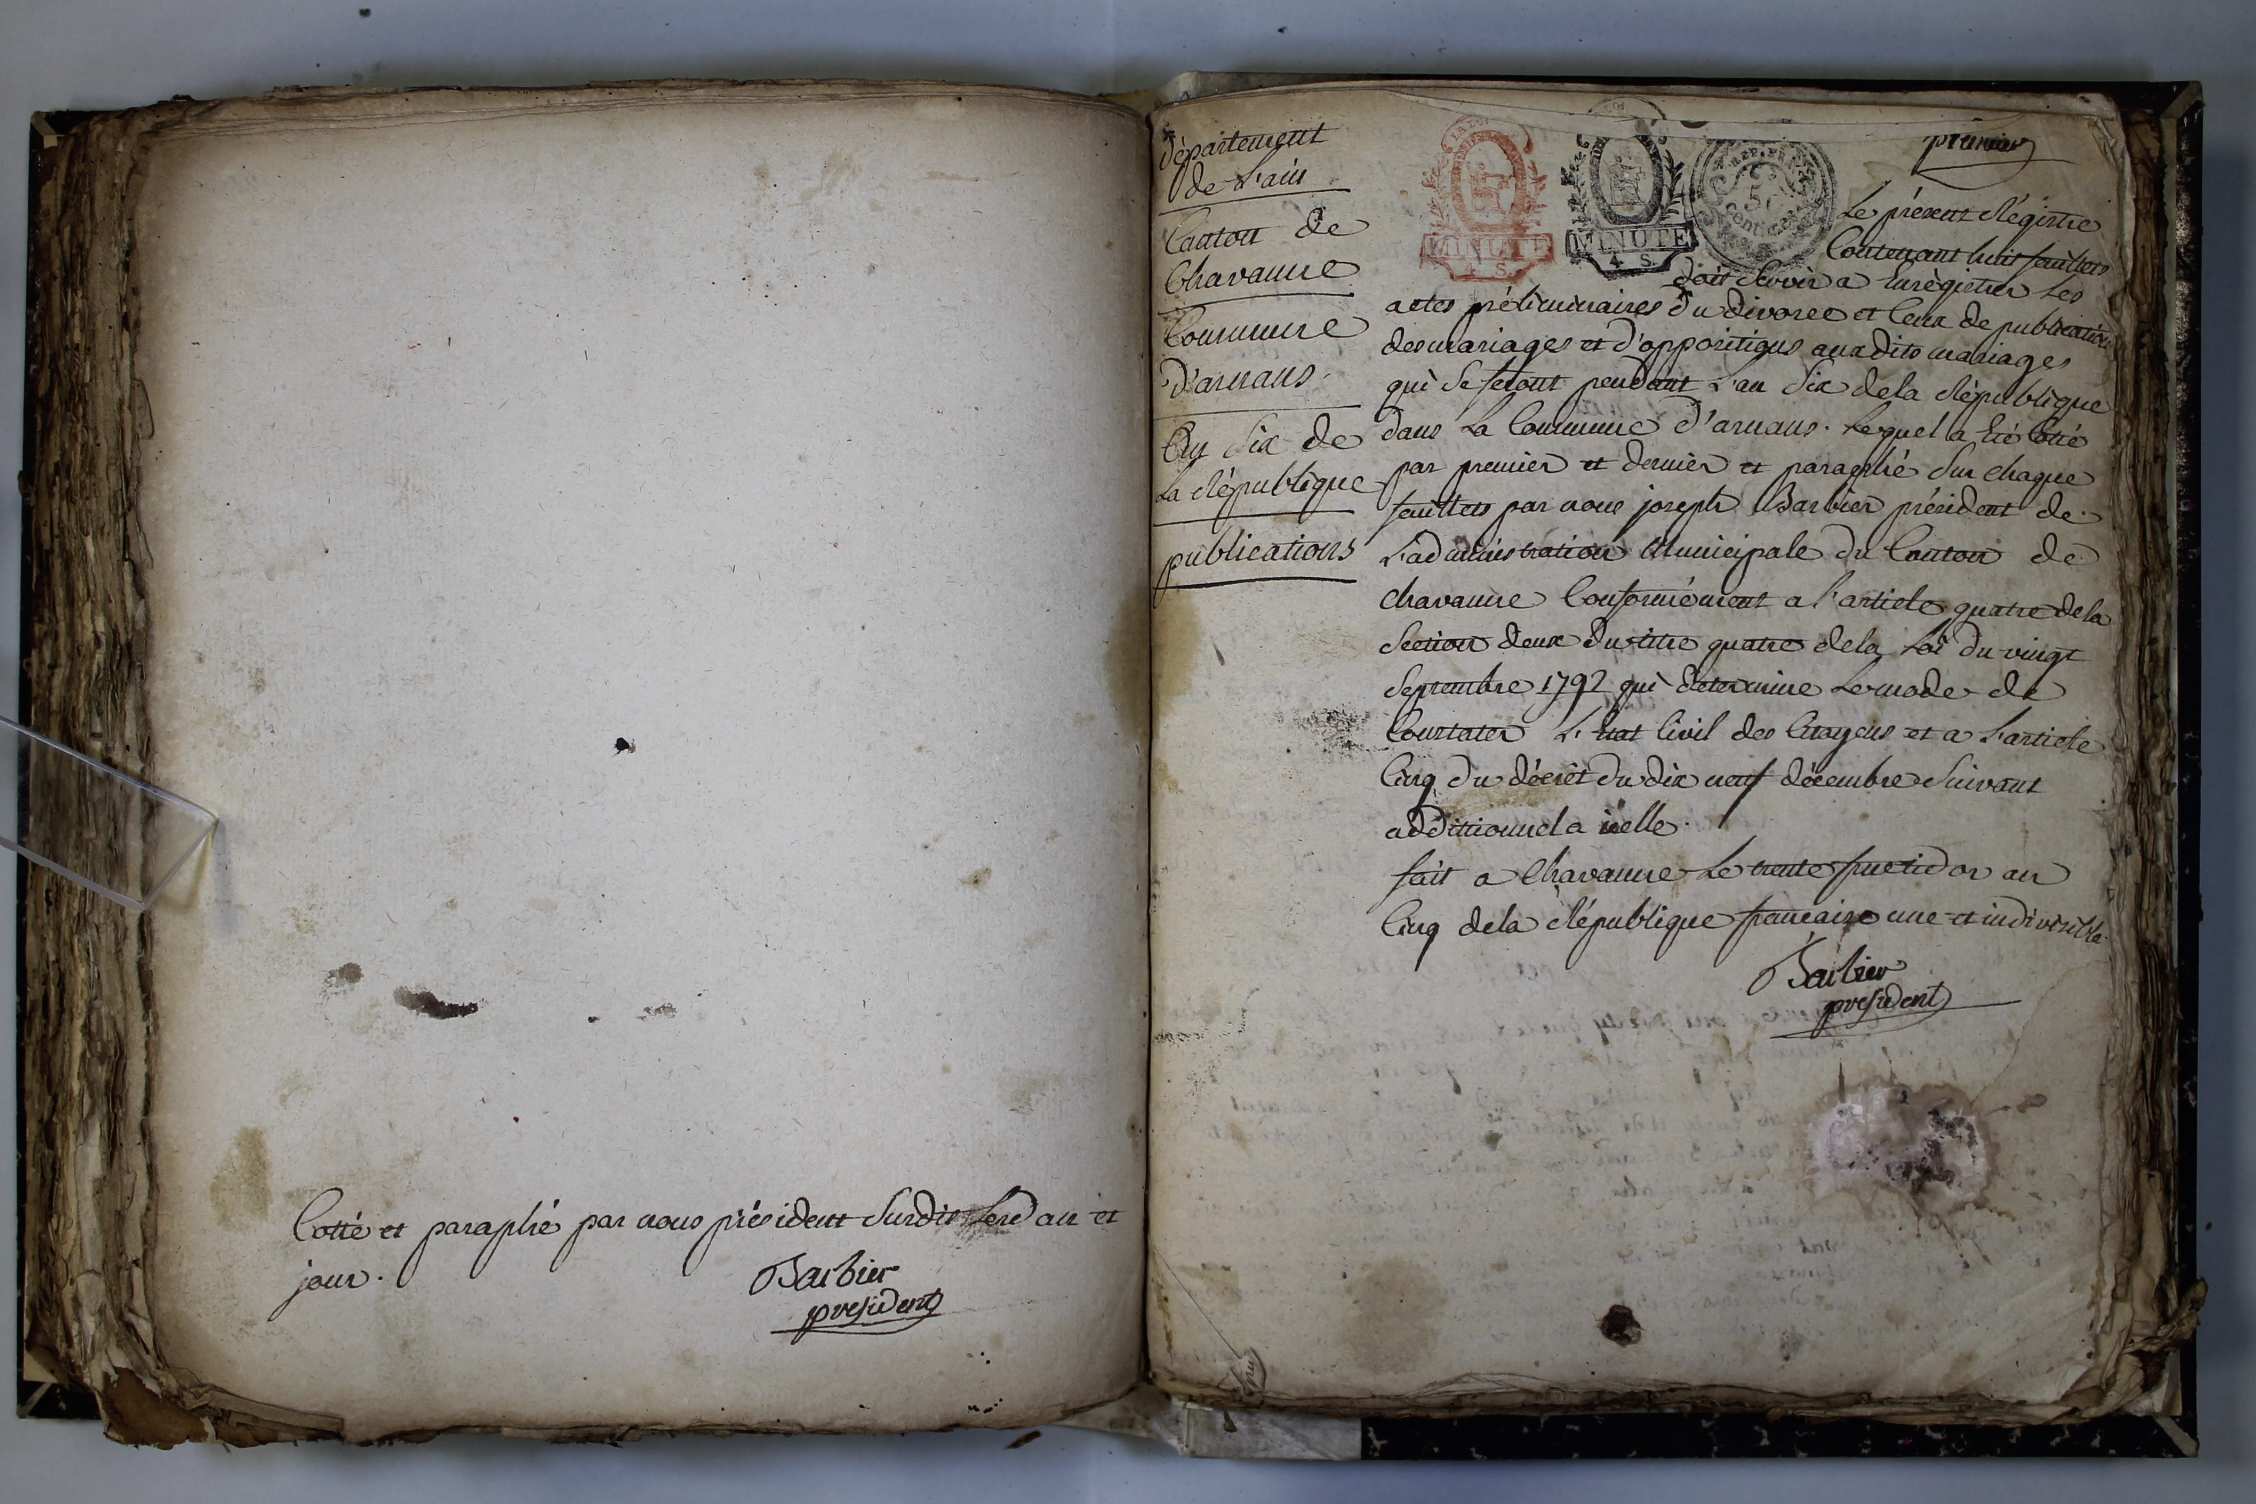 Cotté et paraphé par nous président Surdit Lesd an et
jour.
Barbier
president
département
de L'ain
Canton de
Chavanne
Commune
d'arnans.
An Six de
La République
publications
LA LOI
MINUTE
4. S.
MINUTE
4. S.
REP. FRA
5
Centimes
premier
Le présent Régistre
Contenant huit feuillets
doit Servir a Enrégistrer Les
actes préliminaires du divorce et Ceux de publication
des mariages et d'oppositions auxdits mariages
qui Se feront pendant L'an Six de la République
dans La Commune d'arnans. Lequel a Eté Cotté
par premier et dernier et paraphé Sur chaque
feuillets par nous joseph Barbier président de
L'administration Municipale du Canton de
Chavanne Conformément a l'article quatre de la
Section deux du titre quatre de la Loi du vingt
Septembre 1792 qui détermine Le mode de
Constater L'Etat Civil des Citoyens et a L'article
Cinq du décrèt du dix neuf décembre Suivant
additionnel a icelle.
fait a Chavanne Le trente fructidor an
Cinq de la République francaise une et indivisible.
Barbier
president